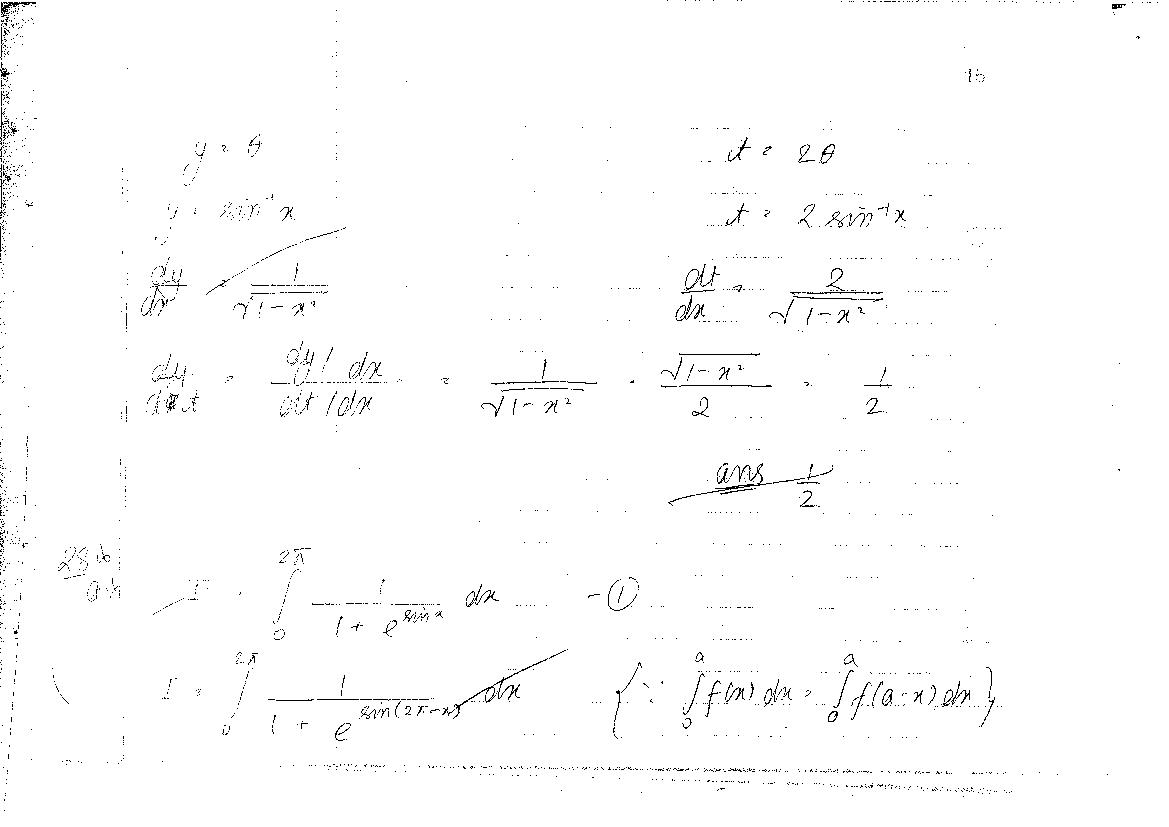 16
y = θ t = 2θ
y = sin⁻¹x t = 2 sin⁻¹x
dy/dx = 1/√(1-x²) dt/dx = 2/√(1-x²)
dy/dt = (dy/dx)/(dt/dx) = 1/√(1-x²) · √(1-x²)/2 = 1/2
ans 1/2
28
I = ∫₀^{2π} 1/(1 + e^{sin x}) dx - ①
I = ∫₀^{2π} 1/(1 + e^{sin(2π-x)}) dx {∵ ∫₀^a f(x) dx = ∫₀^a f(a-x) dx}